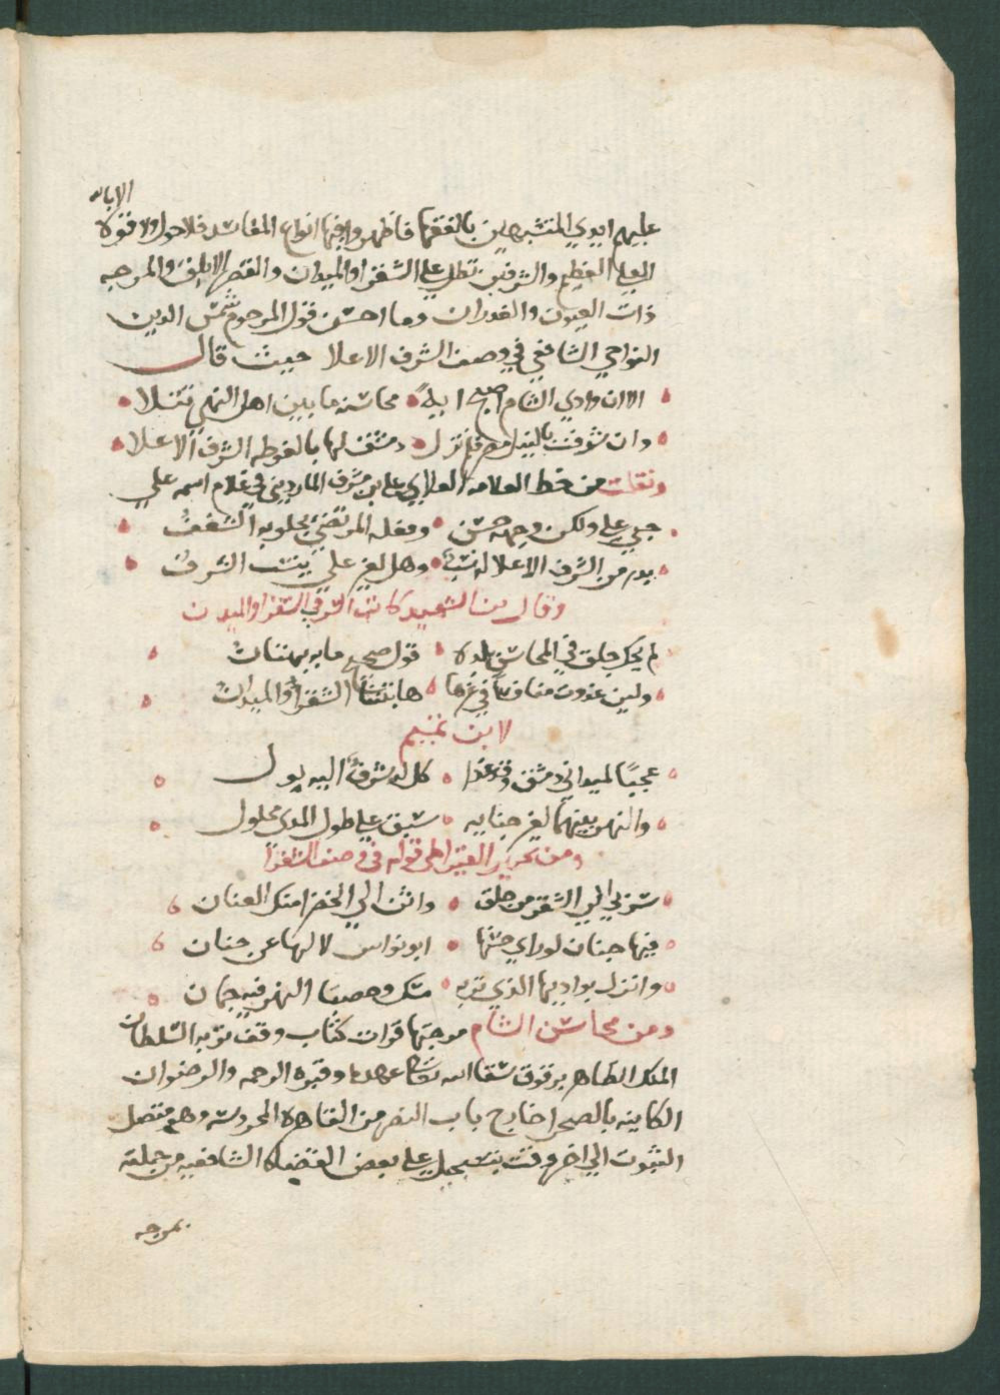 الا بالله
عليهم ايدي المتشبهين بالفقها فاظهروا فيها انواع المفاسد فلا حول ولا قوة
العلي العظيم والشرفين تطل علي الشقرا والميدان والقصر الابلق والمرجه
ذات العيون والغدران وما احسن قول المرحوم شمس الدين
النواجي الشافعي في وصف الشرف الاعلا حيث قال
الا ان وادي الشام اصبح اية محاسنه ما بين اهل النهي تتلا
وان شرفت بالنيل مصر فلم تزل دمشق لها بالغوطه الشرف الاعلا
ونقلت من خط العلامه العلاي علي بن مشرف المارديني في غلام اسمه علي
حبي علي ولكن وجهه حسن ومقله المرتضي يحلو به الشغف
بدر من الشرف الاعلا له نسب وهل لغير علي ينسب الشرف
وقال بن الشهيد كاتب السر في الشقرا والميدان
لم يحك جلق في المحاسن بلدة قول صحيح ما به بهتان
ولين غدوت منافسا في غيرها ها بيننا الشقرا والميدان
لابن تميم
عجبا لميداني دمشق وقد غدا كل له شرف اليه يول
والنهر بينهما لغير جنايه سيف علي طول المدي محلول
ومن تحرير القيراطي قوله في وصف الشقرا
سر بي الي الشقر من جلق واثن الي الخضرا منك العنان
فيها جنان لو راي حسنها ابو نواس لالها عن جنان
وانزل بواديها الذي تربه مسك وحصبا النهر فيه جمان
ومن محاسن الشام مرجتها قرات كتاب وقف تربه السلطان
الملك الظاهر برقوق سقا الله تعالي عهده وقبره الرحمه والرضوان
الكاينه بالصحرا خارج باب النصر من القاهرة المحروسه وهو متصل
الثبوت الي اخر وقت بتسجيل علي بعض القضاة الشافعيه من جملته
بمرجه